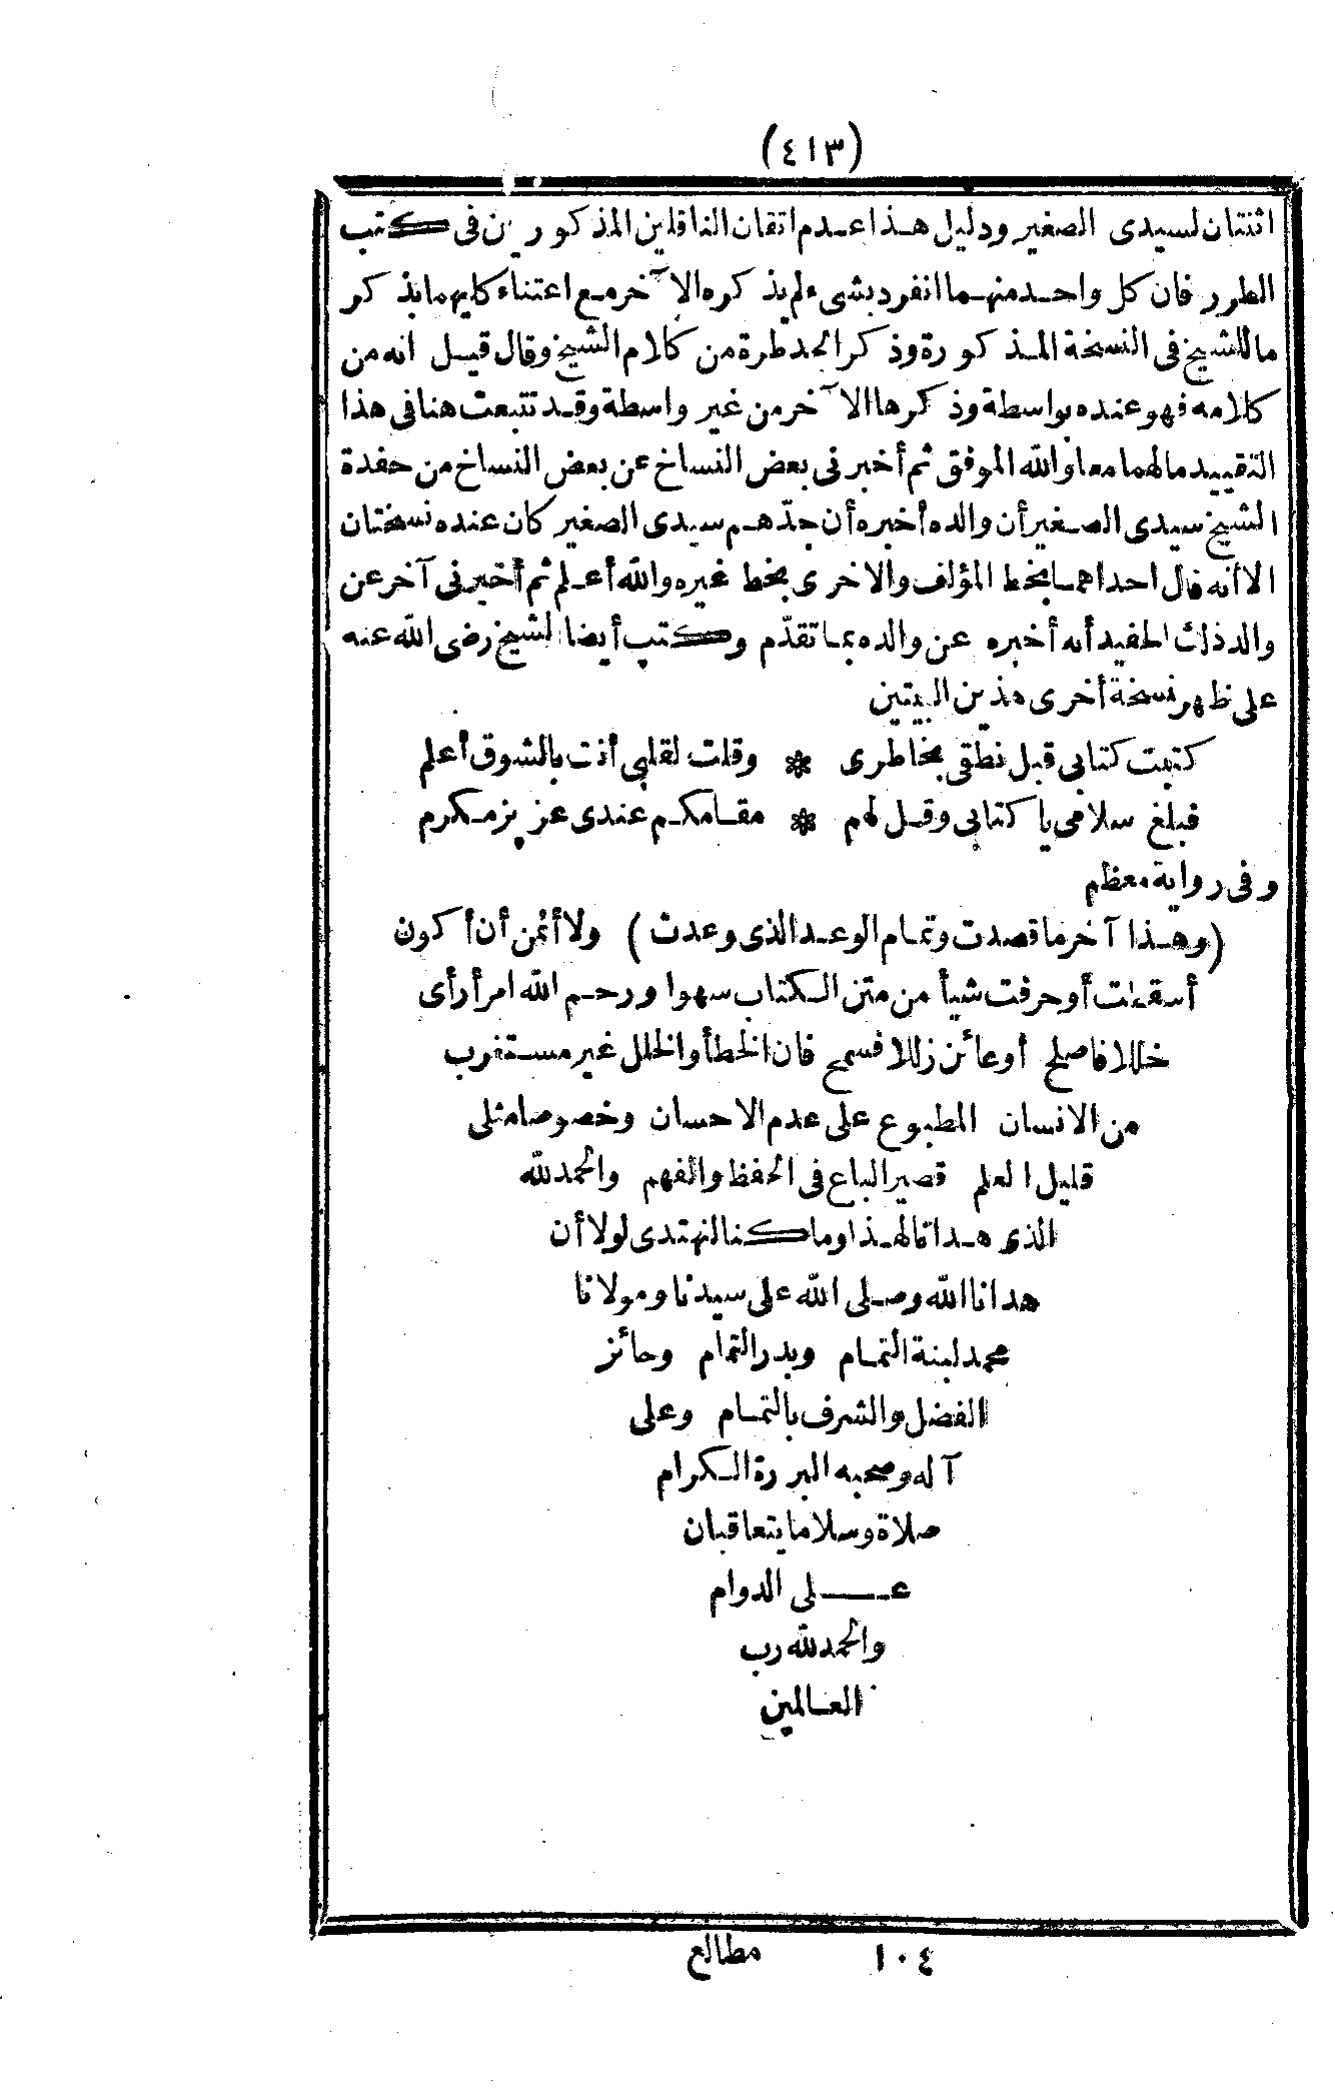 (٤١٣)
اثنتان لسيدى الصغير ودليل هذا عدم اتقان الناقلين المذكورين فى كتب
الطرر فان كل واحد منهما انفرد بشىء لم يذكره الآخر مع اعتناء كليهما بذكر
ما للشيخ فى النسخة المذكورة وذكر الجد طرة من كلام الشيخ وقال قيل انه من
كلامه فهو عنده بواسطة وذكرها الآخر من غير واسطة وقد تتبعت هنا فى هذا
التقييد ما لهما معا والله الموفق ثم أخبرنى بعض النساخ عن بعض النساخ من حفدة
الشيخ سيدى الصغير أن والده أخبره أن جدّهم سيدى الصغير كان عنده نسختان
الا أنه قال احداهما بخط المؤلف والاخرى بخط غيره والله أعلم ثم أخبرنى آخر عن
والد ذلك الحفيد أنه أخبره عن والده بما تقدّم وكتب أيضا الشيخ رضى الله عنه
على ظهر نسخة أخرى هذين البيتين
كتبت كتابى قبل نطقى بخاطرى * وقلت لقلبى أنت بالشوق أعلم
فبلغ سلامى يا كتابى وقل لهم * مقامكم عندى عزيز مكرم
وفى رواية معظم
(وهذا آخر ما قصدت وتمام الوعد الذى وعدت) ولا أئمن أن أكون
أسقطت أو حرفت شيأ من متن الكتاب سهوا ورحم الله امرأ رأى
خللا فاصلح أو عائن زللا فسمح فان الخطأ والخلل غير مستغرب
من الانسان المطبوع على عدم الاحسان وخصوصا مثلى
قليل العلم قصير الباع فى الحفظ والفهم والحمد لله
الذى هدانا لهذا وما كنا لنهتدى لولا أن
هدانا الله وصلى الله على سيدنا ومولانا
محمد لبنة التمام وبدر التمام وحائز
الفضل والشرف بالتمام وعلى
آله وصحبه البررة الكرام
صلاة وسلاما يتعاقبان
على الدوام
والحمد لله رب
العالمين
١٠٤ مطالع